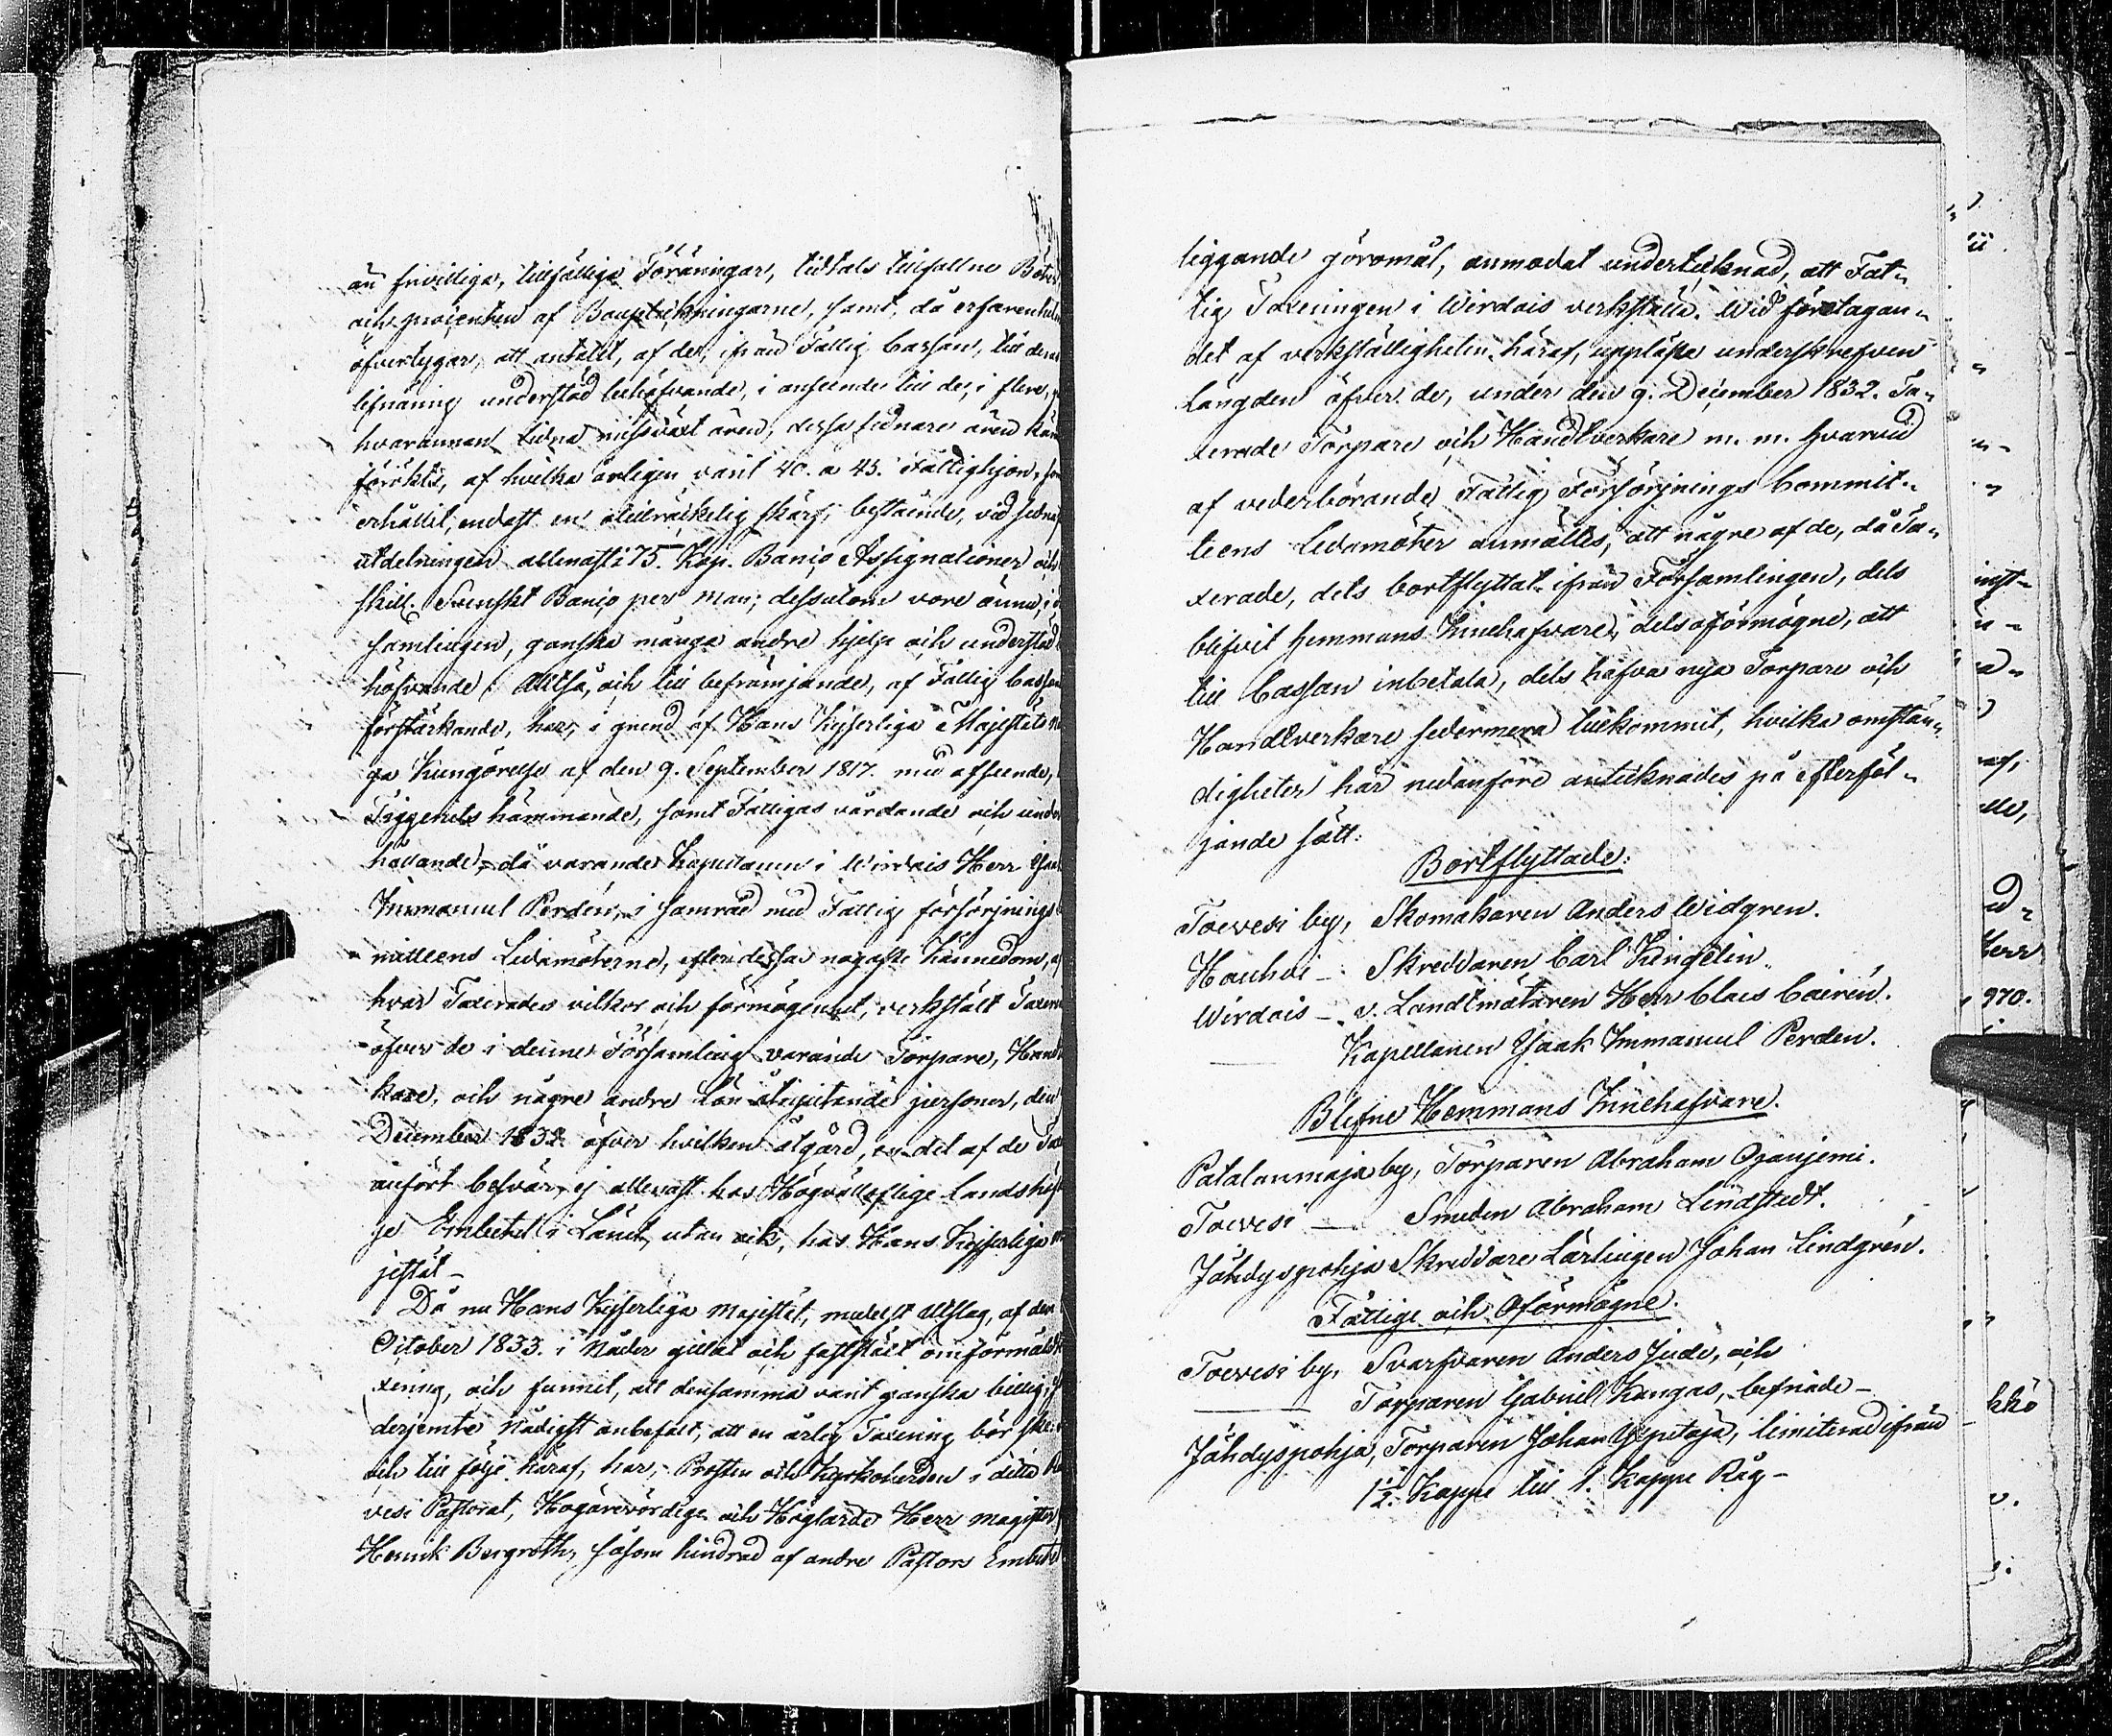 än frivillige, tillfällige Föräningar, tidtals tillfallne Böter
och procenten af Bouptekningarne, samt, då erfarenheten
öfvertygar, att antalet, af det, ifrån Fattig Cassan, till deras
lifnäring understöd behöfvande, i anseende till de, i flere,
hvarannan lidna missväxt åren, dessa sednare åren
förökts, af hvilka årligen varit 40. a 45. Fattighjon, som
erhållit, endast en otillräckelig skärf, bestående, vid sedna
utdelningen allenast i 75. Kop. Banco Assignationer och
skill. Svenskt Banco per man; dessutom vore ännu, i
samlingen, ganska många andre hjelp och understöd
höfvande; Alltså, och till befrämjande, af Fattig Cassans
förstärkande, har, i grund af Hans Kejserliga Majestäts
ga Kungörelse af den 9. September 1817. med afseende,
Tiggeriets hämmande, samt Fattigas vårdande och under
hållande, då varande Kapellanen i Wirdois Herr Isaak
Immanuel Perdén, i samråd med Fattig försörjnings
mitteens Ledamöterne, efter dessas nogaste kännedom, af
hvar Taxerades vilkor och förmögenhet, verkstält Taxering
öfver de i denne Församling varande Torpare, Hand
kare, och någre andre Lön åtnjutande personer, den
December 1832. öfver hvilken åtgärd, en del af de Tax
anfört besvär, ej allenast hos Högvällofliga Landshöf
ge Embetet i Länet, utan ock, hos Hans Kejserliga
jestät_
Då nu Hans Kejserliga Majestät, medelst Utslag, af den
October 1833. i Nåder gillat och faststält omförmälde
xering, och funnit, att densamma varit ganska billig,
derjemte Nådigst anbefalt, att en årlig Taxering bör ske,
och till följe häraf, har, Prosten och Kyrkoherden i detta
vesi Pastorat, Högärevördige och Höglärde Herr Magister
Henrik Bergroth, såsom hindrad af andre Pastors Embetet
liggande göromål, anmodat undertecknad, att Fat-
tig Taxeringen i Wirdois verkställa. Wid företagan-
det af verkställigheten häraf, upplästes underskrefven
längden öfver de, under den 9. December 1832. Ta-
xerade Torpare och Handtverkare m. m. hvarvid
af vederbörande Fattig Försörjnings Commit-
teens Ledamöter anmältes, att någre af de, då Ta-
xerade, dels bortflyttat ifrån Församlingen, dels
blifvit hemmans Innehafvare, dels oförmögne, att
till Cassan inbetala, dels hafva nya Torpare och
Handtverkare sedermera tillkommit, hvilka omstän-
digheter här nedanföre antecknades på efterföl-
jande sätt:
Bortflyttade:
Toivesi by, Skomakaren Anders Widgren.
Hauhoi _ Skreddaren Carl Kingelin
Wirdois _ v. Landtmätaren Herr Claes Cairén.
____ Kapellanen Isaak Immanuel Perden.
Blifne Hemmans Innehafvare.
Patalanmaja by, Torparen Abraham Ojanjemi.
Toivesi ___ Smeden Abraham Lindstedt.
Jähdyspohja Skreddare Lärlingen Johan Lindgrén.
Fattige och Oförmögne.
Toivesi by, Svarfvaren Anders Jude, och
____ Torparen Gabriel Kangas, befriade_
Jähdyspohja, Torparen Johan Yspetaja, limiterad ifrån
1 1/2. Kappe till 1. Kappe Råg_